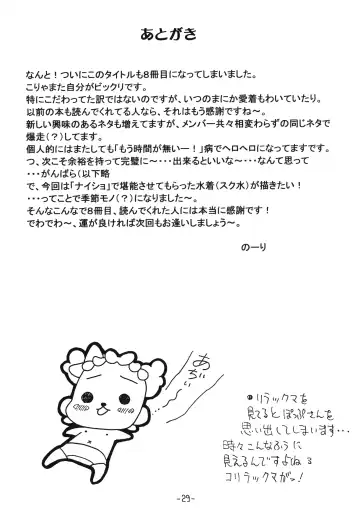 あとがき
なんと！ついにこのタイトルも8冊目になってしまいました。
こりゃまた自分がビックリです。
特にこだわってた訳ではないのですが、いつのまにか愛着もわいていたり。
以前の本も読んでくれてる人なら、それはもう感謝ですね～。
新しい興味のあるネタも増えてますが、メンバー共々相変わらずの同じネタで
爆走(？)してます。
個人的にはまたしても「もう時間が無いー！」病でヘロヘロになってますです。
つ、次こそ余裕を持って完璧に～・・・出来るといいな～・・・なんて思って
・・・がんばら(以下略
で、今回は「ナイショ」で堪能させてもらった水着(スク水)が描きたい！
・・・ってことで季節モノ(？)になりました～。
そんなこんなで8冊目、読んでくれた人には本当に感謝です！
でわでわ～、運が良ければ次回もお逢いしましょう～。
のーり
あぢぃ～
●リラックマを
見てるとぽっぷさんを
思い出してしまいます…
時々こんなふうに
見えるんですよね
コリラックマがっ！
-29-